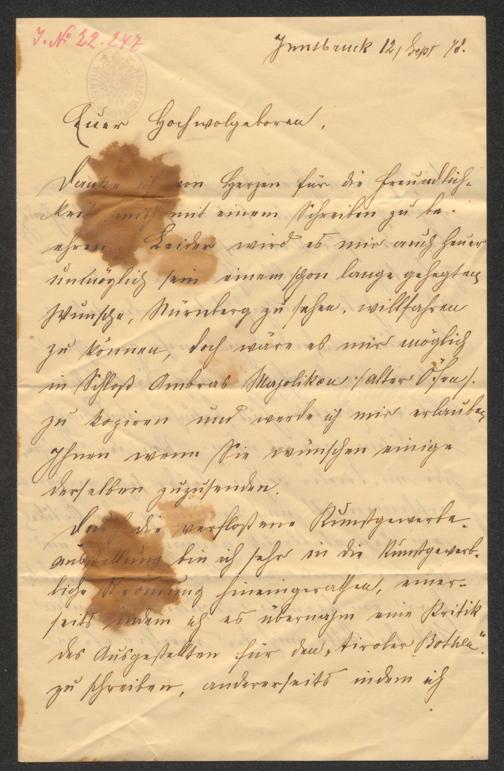 J. No 22.247
Innsbruck 12/Sept 78.
Euer Hochwolgeboren,
Danke ich von Herzen für die Freundlich-
keit mich mit einem Schreiben zu be-
ehren. Leider wird es mir auch heuer
unmöglich sein einem schon lange gehegten
Wunsche, Nürnberg zu sehen, willfahren
zu können, doch wäre es mir möglich
in Schloß Ambras Majoliken /:alter Öfen:/
zu kopiren und werde ich mir erlauben
Ihnen wenn Sie wünschen einige
derselben zuzusenden.
Durch die verfloßene Kunstgewerbe-
ausstellung bin ich sehr in die kunstgewerb-
liche Strömung hineingerathen, einer-
seits indem ich es übernahm eine Kritik
des Ausgestellten für den "Tiroler Bothen"
zu schreiben, andererseits indem ich